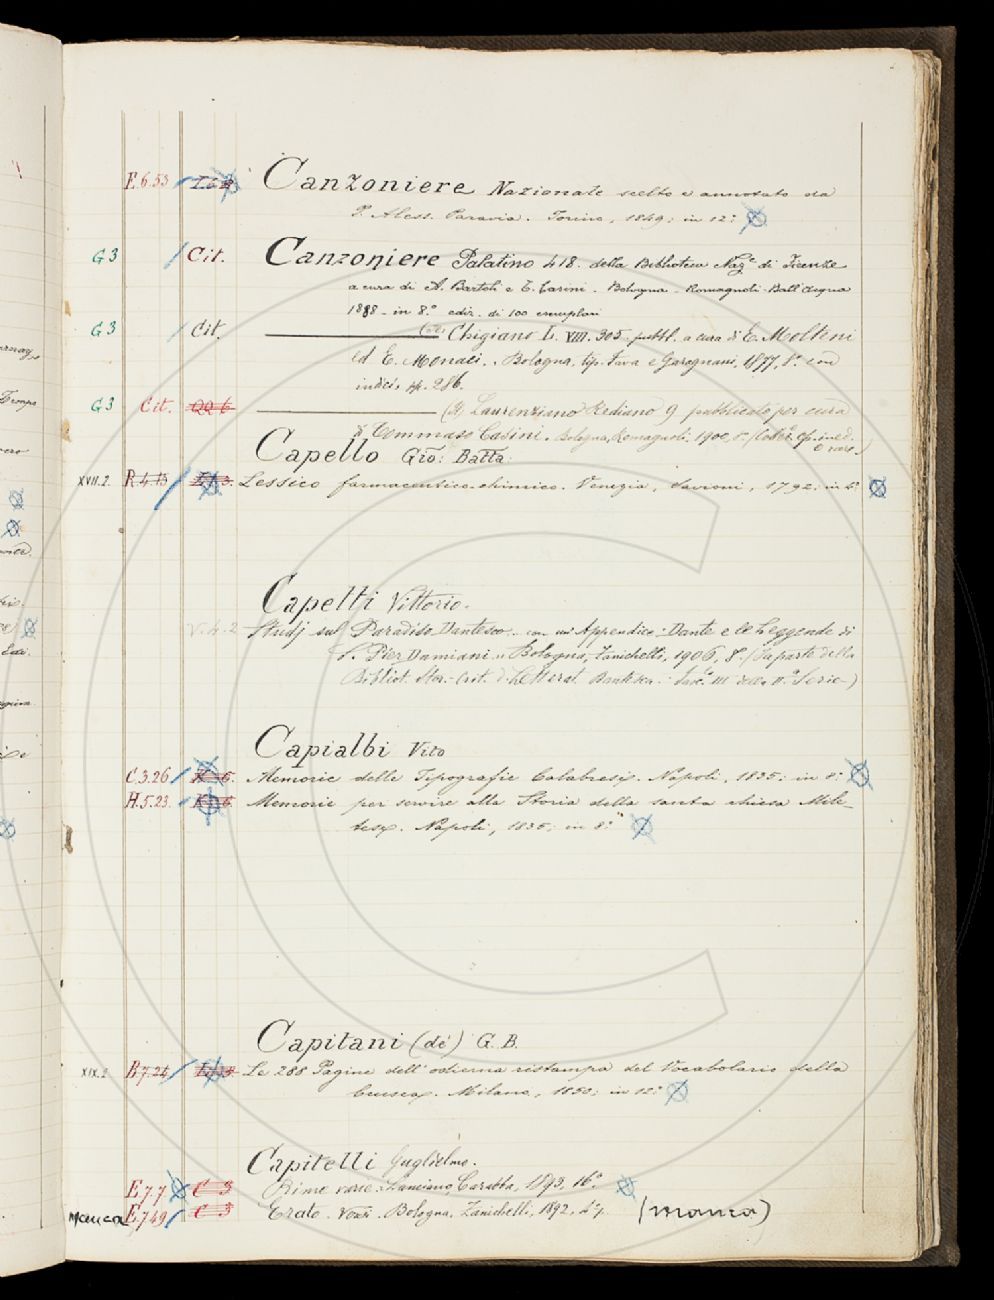 F.6.53 Canzoniere Nazionale scelto e annotato da
P. Aless. Paravia. Torino, 1849; in 12.°
G 3 Cit. Canzoniere Palatino 418. della Biblioteca Naz.e di Firenze
a cura di A. Bartoli e T. Casini. Bologna - Romagnoli-Dall'Acqua
1888 - in 8.° ediz. di 100 esemplari
G 3 Cit. Chigiano L. VIII. 305. pubbl. a cura di E. Molteni
ed E. Monaci. Bologna, tip. Fava e Garagnani, 1877, 8.° con
indici, pp. 286.
G 3 Cit. QQ 6 (Il) Laurenziano Rediano 9 pubblicato per cura
di Tommaso Casini. Bologna, Romagnoli. 1900, 8.°
Capello Gio: Batta:
XVII.2. R.4.13 Lessico farmaceutico-chimico. Venezia, Savioni, 1792; in 4.°
Capetti Vittorio.
V.4.2 Studj sul Paradiso Dantesco con un' Appendice: Dante e le Leggende di
S. Pier Damiani. Bologna, Zanichelli, 1906, 8.° (Fa parte della
Bibliot. Stor.-Crit. d. Letterat. Dantesca. Fasc. III della II.a Serie)
Capialbi Vito
C.3.26 Memorie delle Tipografie Calabresi. Napoli, 1835; in 8.°
H.5.23. Memorie per servire alla Storia della santa chiesa Mile-
tese. Napoli, 1835; in 8.°
Capitani (de') G. B.
XIX.2 B.7.24 Le 288 Pagine dell' odierna ristampa del Vocabolario della
Crusca. Milano, 1850; in 12.°
Capitelli Guglielmo.
E.7.7 C 3 Rime varie. Lanciano, Carabba, 1893, 16.°
manca E.7.49 C 3 Erato. Versi. Bologna. Zanichelli, 1892, 4.° (manca)